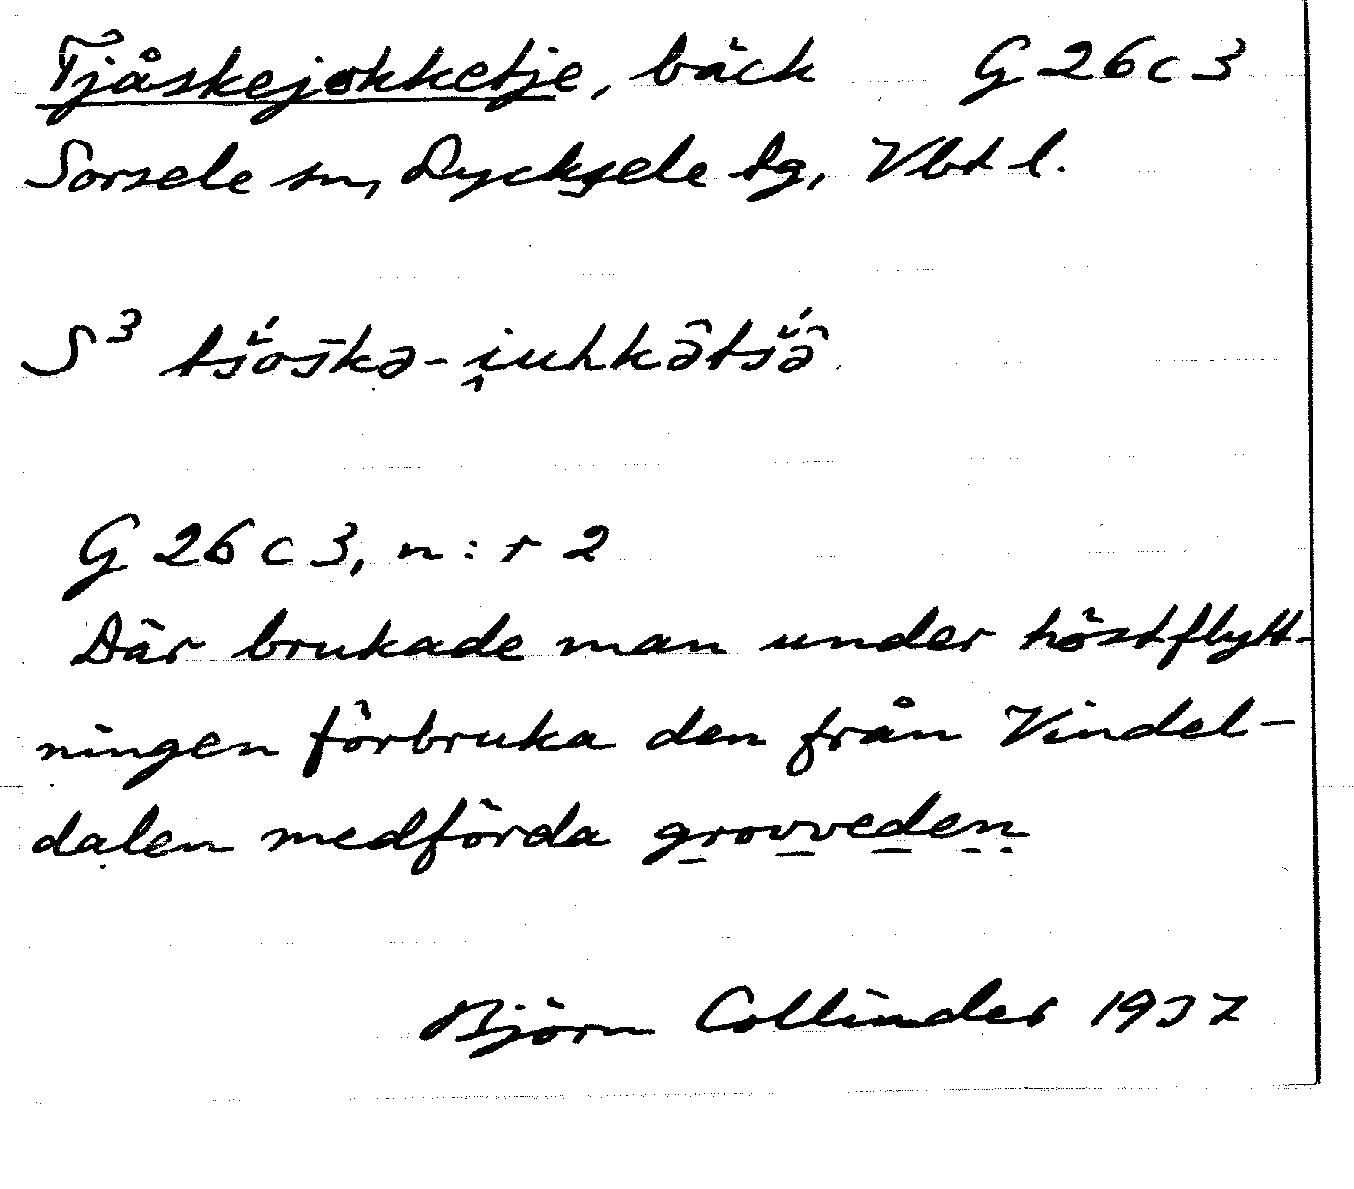 Tjåskejokketje, bäck G 26 c 3
Sorsele sn, Lycksele lg, Vbt l.
S³
G 26 c 3, n:r 2
Där brukade man under höstflytt-
ningen förbruka den från Vindel-
dalen medförda grovveden
Björn Collinder 1937